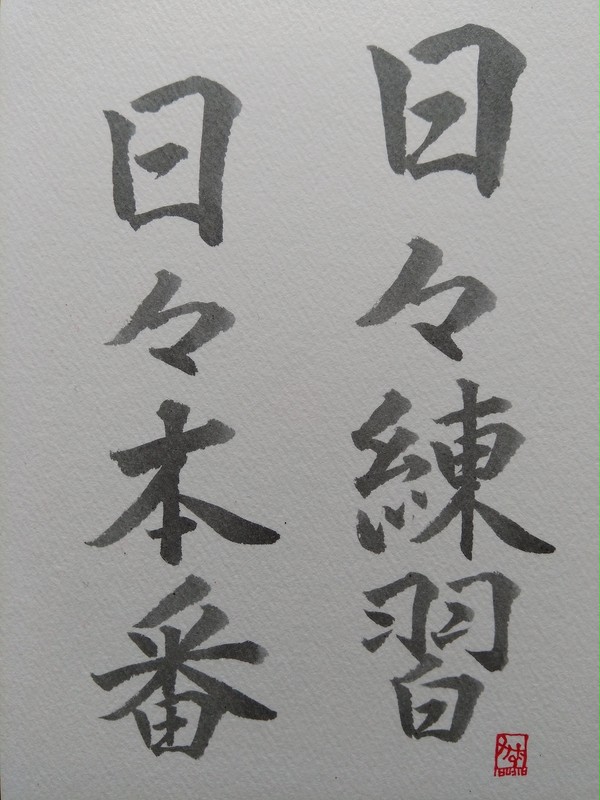 日々練習
日々本番